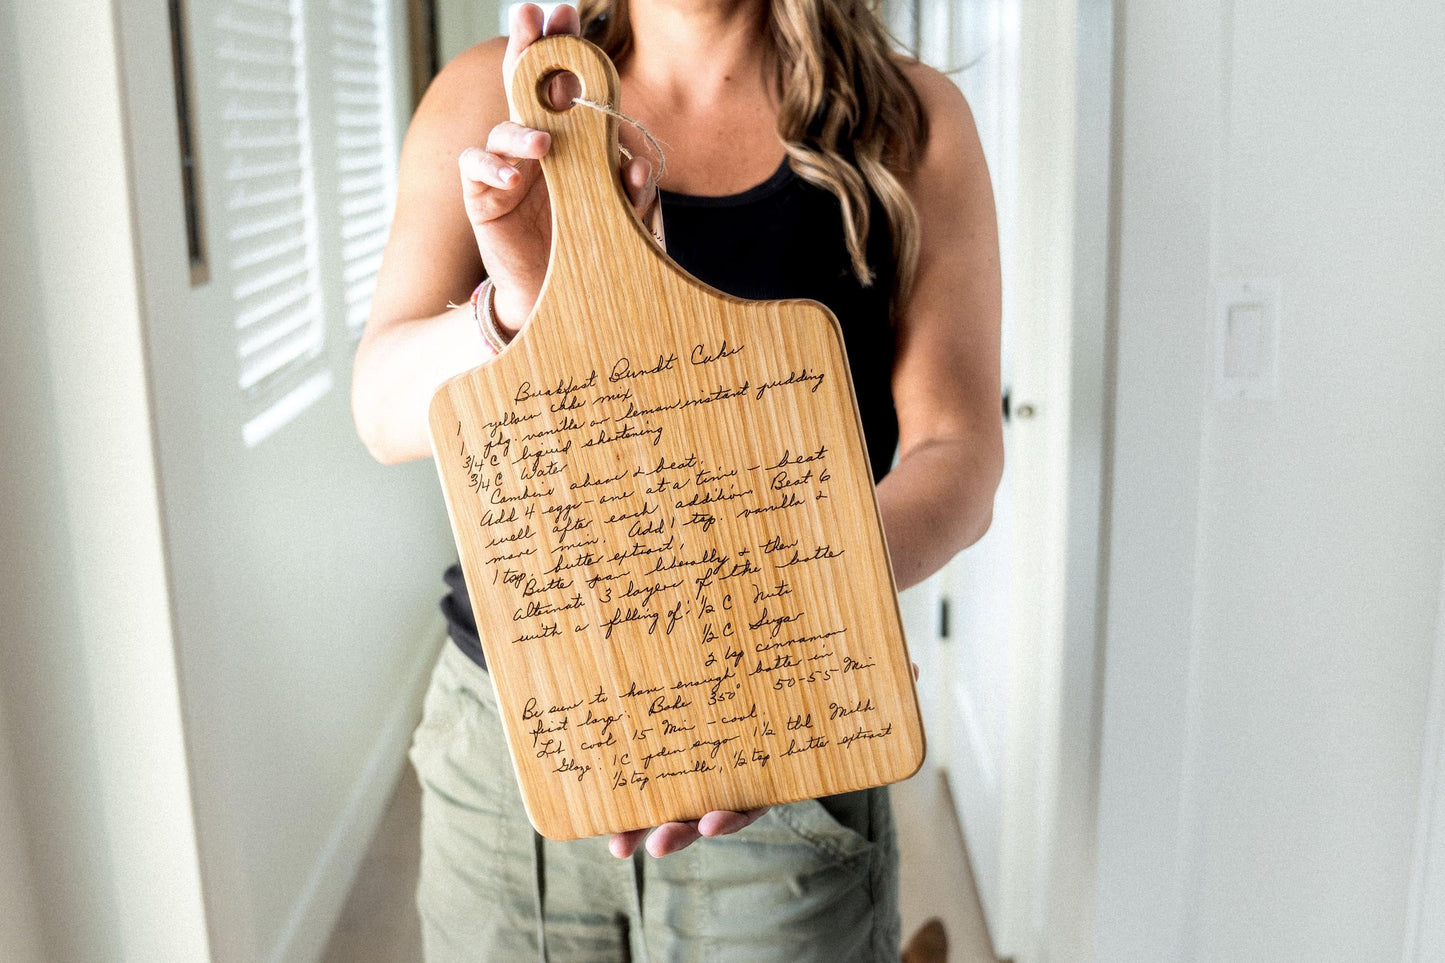 Breakfast Bundt Cake
1 yellow cake mix
1 pkg. vanilla or lemon instant pudding
3/4 C liquid shortening
3/4 C Water
Combine above & beat.
Add 4 eggs - one at a time - beat
well after each addition. Beat 6
more min. Add 1 tsp. vanilla &
1 tsp. butter extract.
Butter pan liberally & then
alternate 3 layers of the batter
with a filling of: 1/2 C Nuts
1/2 C Sugar
2 tsp cinnamon
Be sure to have enough batter in
first layer. Bake 350° 50-55 Min
Let cool 15 Min - cool.
Glaze: 1 C pdr. sugar 1 1/2 tbl Milk
1/2 tsp vanilla, 1/2 tsp butter extract